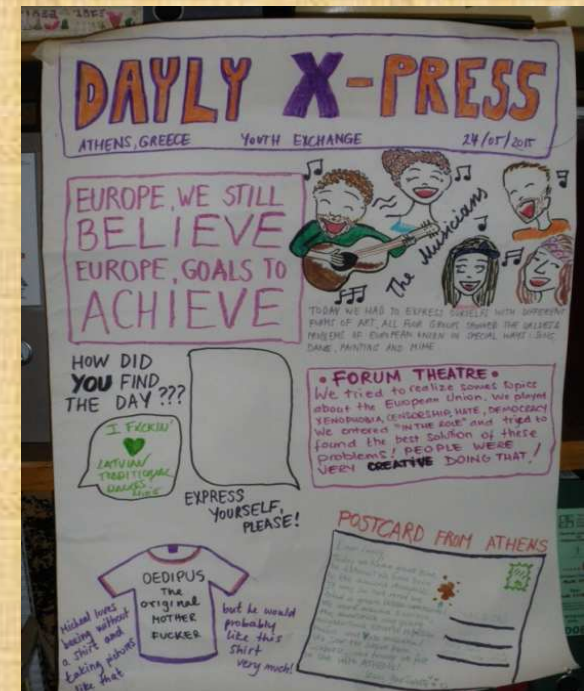 DAYLY X-PRESS
ATHENS, GREECE YOUTH EXCHANGE 24/05/2015
EUROPE, WE STILL
BELIEVE
EUROPE, GOALS TO
ACHIEVE
The Musicians
TODAY WE HAD TO EXPRESS OURSELVES WITH DIFFERENT
FORMS OF ART. ALL FOUR GROUPS SHOWED THE
PROBLEMS OF EUROPEAN UNION IN SPECIAL WAYS: SONG,
DANCE, PAINTING AND MIME
HOW DID
YOU FIND
THE DAY???
I FUCKIN'
LATVIAN
TRADITIONAL
DANCES
EXPRESS
YOURSELF,
PLEASE!
• FORUM THEATRE •
We tried to realize somes topics
about the European Union. We played
XENOPHOBIA, CENSORSHIP, HATE, DEMOCRACY
We entered "IN THE ROLE" and tried to
found the best solution of these
problems! PEOPLE WERE
VERY CREATIVE DOING THAT!
OEDIPUS
The
original
MOTHER
FUCKER
Michael loves
beeing without
a shirt and
taking pictures
like that
but he would
probably
like this
shirt
very much!
POSTCARD FROM ATHENS